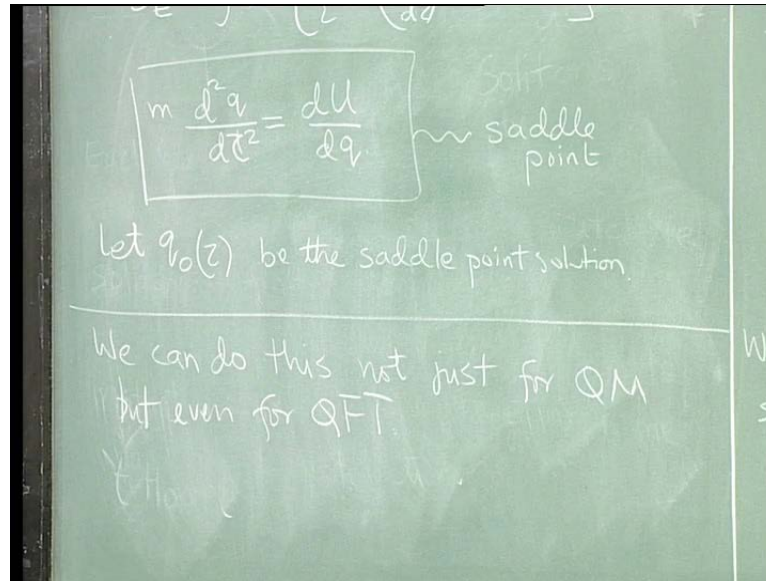 m d²q/dτ² = dU/dq
saddle
point
Let q₀(τ) be the saddle point solution.
We can do this not just for QM
but even for QFT.